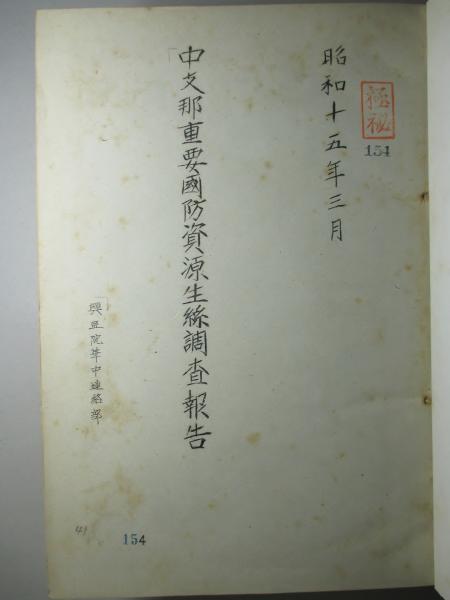 極秘
154
昭和十五年三月
中支那重要國防資源生絲調査報告
興亜院華中連絡部
154
41